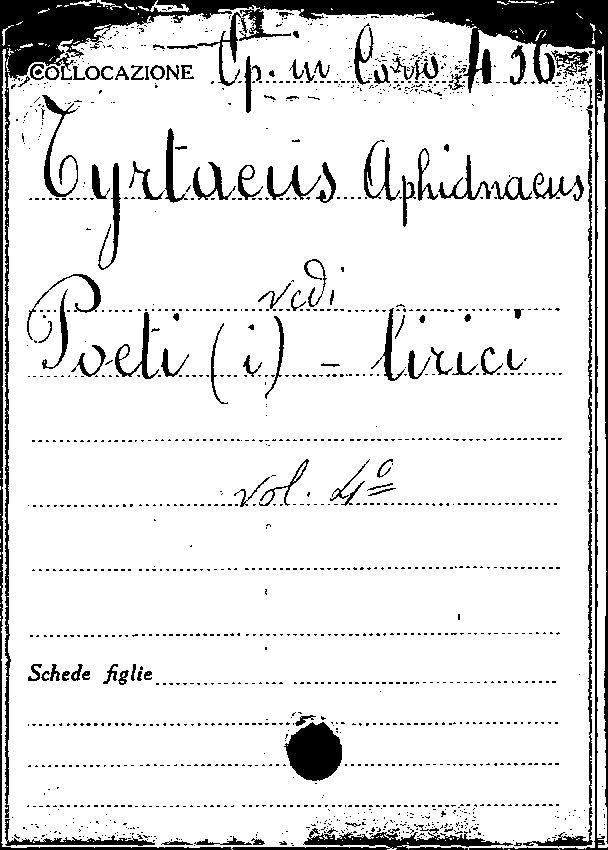 COLLOCAZIONE Op. in Corso 436
Tyrtaeus Aphidnaeus
vedi
Poeti (i) - lirici
vol. 4º
Schede figlie